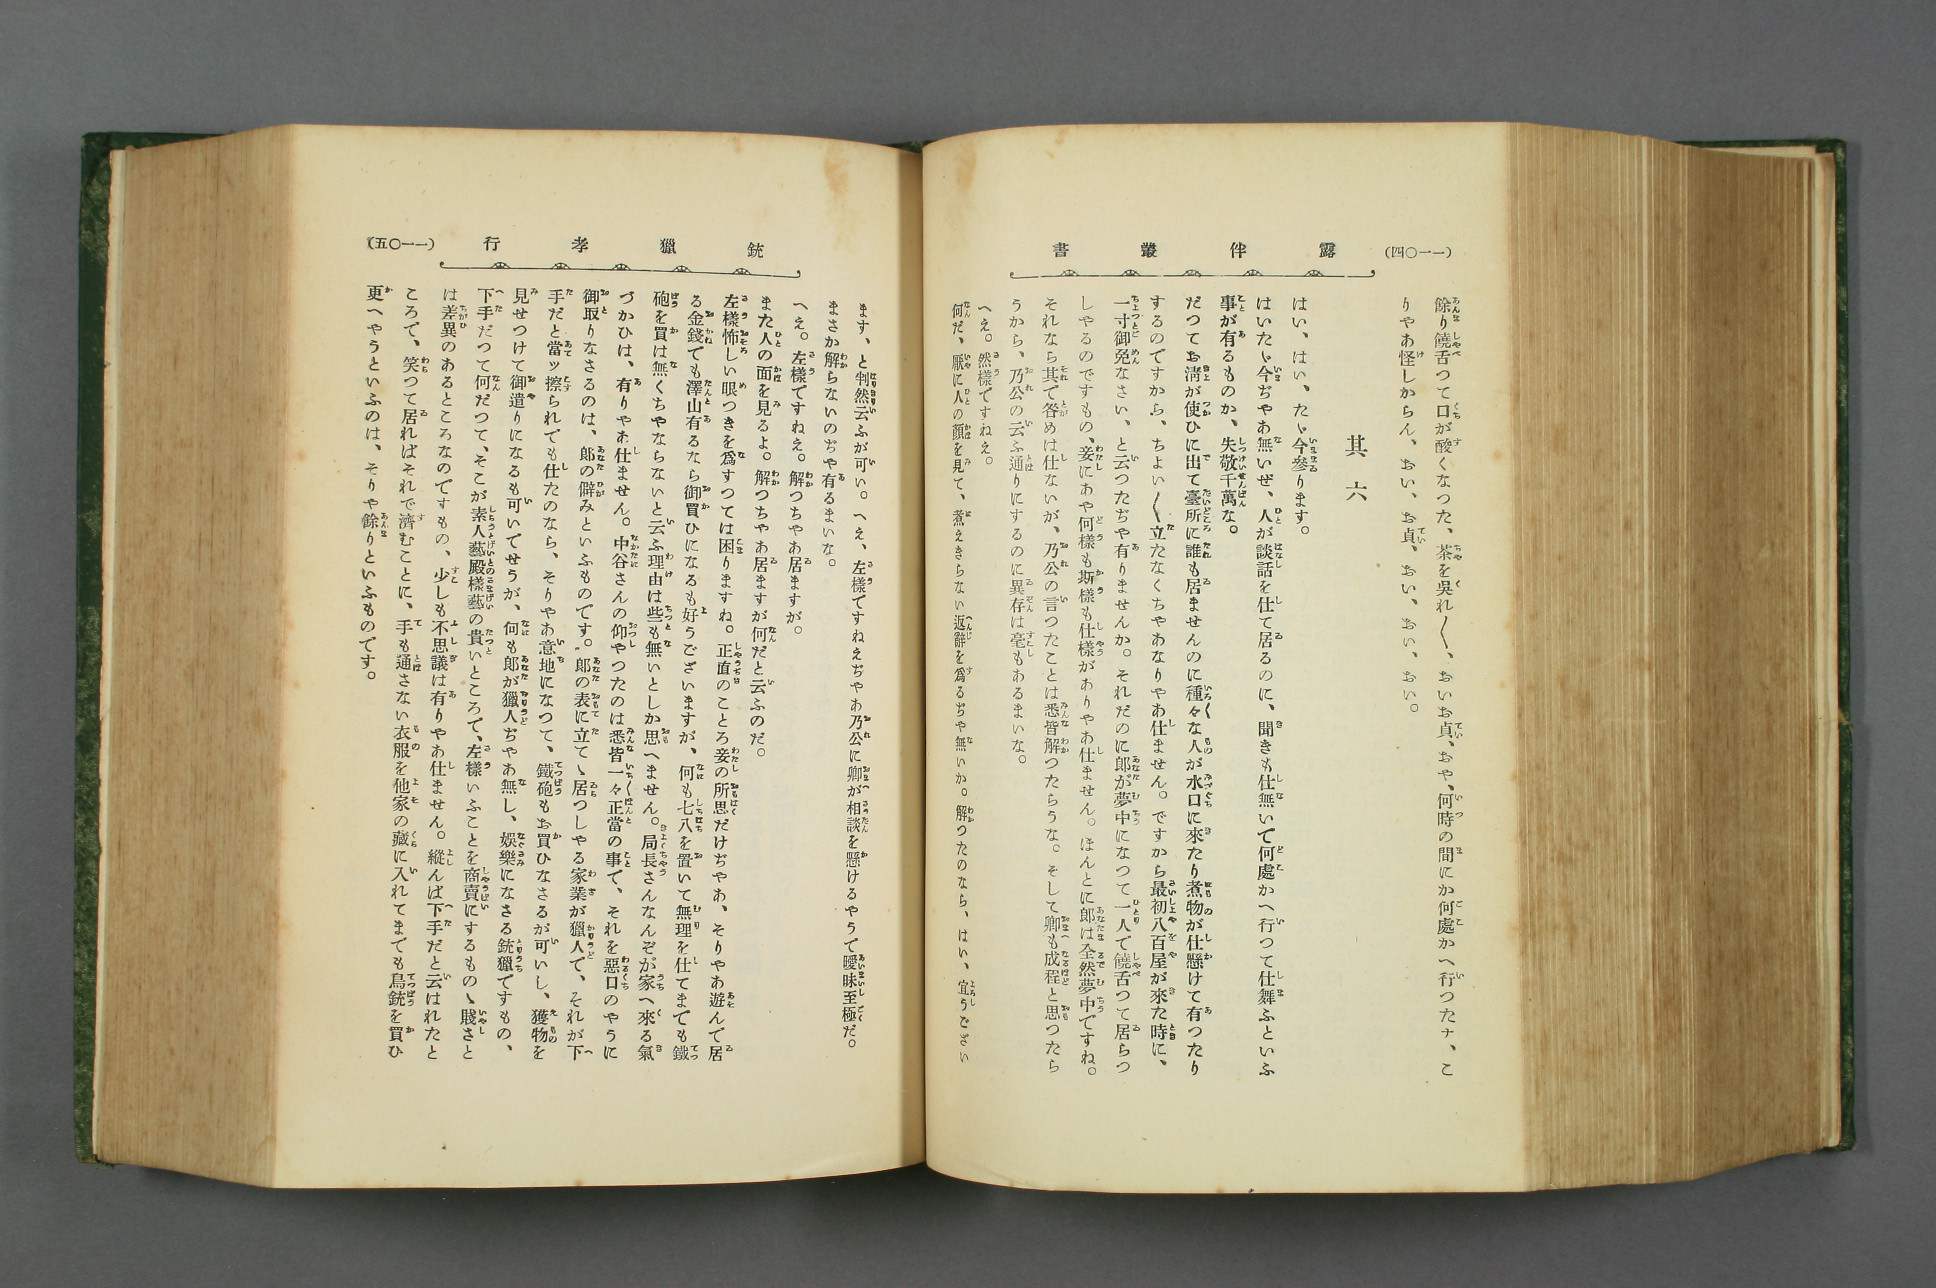 (一一〇四)
露伴叢書
餘り饒舌つて口が酸くなつた、茶を呉れ〱、おいお貞、おや、何時の間にか何處かへ行つたナ、こ
りやあ怪しからん、おい、お貞、おい、おい、おい。
其六
はい、はい、たゞ今參ります。
はいたゞ今ぢやあ無いぜ、人が談話を仕て居るのに、聞きも仕無いで何處かへ行つて仕舞ふといふ
事が有るものか、失敬千萬な。
だつてお淸が使ひに出て臺所に誰も居ませんのに種々な人が水口に來たり煮物が仕懸けて有つたり
するのですから、ちよい〱立たなくちやあなりやあ仕ません。ですから最初八百屋が來た時に、
一寸御免なさい、と云つたぢや有りませんか。それだのに郎が夢中になつて一人で饒舌つて居らつ
しやるのですもの、妾にあや何樣も斯樣も仕樣がありやあ仕ません。ほんとに郎は全然夢中ですね。
それなら其で咎めは仕ないが、乃公の言つたことは悉皆解つたらうな。そして卿も成程と思つたら
うから、乃公の云ふ通りにするのに異存は毫もあるまいな。
へえ。然樣ですねえ。
何だ、厭に人の顏を見て、煮えきらない返辭を爲るぢや無いか。解つたのなら、はい、宜うござい
(一一〇五)
銃獵孝行
ます、と判然云ふが可い。へえ、左樣ですねえぢやあ乃公に卿が相談を懸けるやうで曖昧至極だ。
まさか解らないのぢや有るまいな。
へえ。左樣ですねえ。解つちやあ居ますが。
また人の面を見るよ。解つちやあ居ますが何だと云ふのだ。
左樣怖しい眼つきを爲すつては困りますね。正直のことろ妾の所思だけぢやあ、そりやあ遊んで居
る金錢でも澤山有るなら御買ひになるも好うございますが、何も七八を置いて無理を仕てまでも鐵
砲を買は無くちやならないと云ふ理由は些も無いとしか思へません。局長さんなんぞが家へ來る氣
づかひは、有りやあ仕ません。中谷さんの仰やつたのは悉皆一々正當の事で、それを惡口のやうに
御取りなさるのは、郎の僻みといふものです。郎の表に立てゝ居つしやる家業が獵人で、それが下
手だと當ッ擦られでも仕たのなら、そりやあ意地になつて、鐵砲もお買ひなさるが可いし、獲物を
見せつけて御遣りになるも可いでせうが、何も郎が獵人ぢやあ無し、娛樂になさる銃獵ですもの、
下手だつて何だつて、そこが素人藝殿樣藝の貴いところで、左樣いふことを商賣にするものゝ賤さと
は差異のあるところなのですもの、少しも不思議は有りやあ仕ません。縱んば下手だと云はれたと
ころで、笑つて居ればそれで濟むことに、手も通さない衣服を他家の藏に入れてまでも鳥銃を買ひ
更へやうといふのは、そりや餘りといふものです。